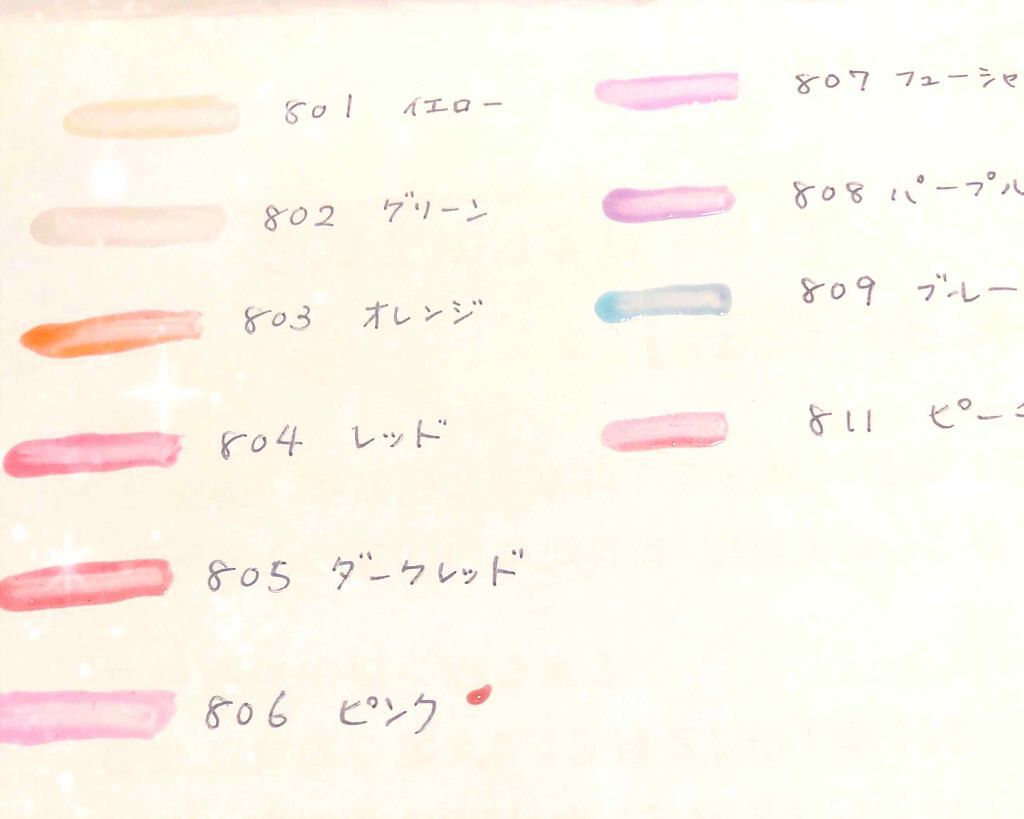 801 イエロー
802 グリーン
803 オレンジ
804 レッド
805 ダークレッド
806 ピンク
807 フューシャ
808 パープル
809 ブルー
811